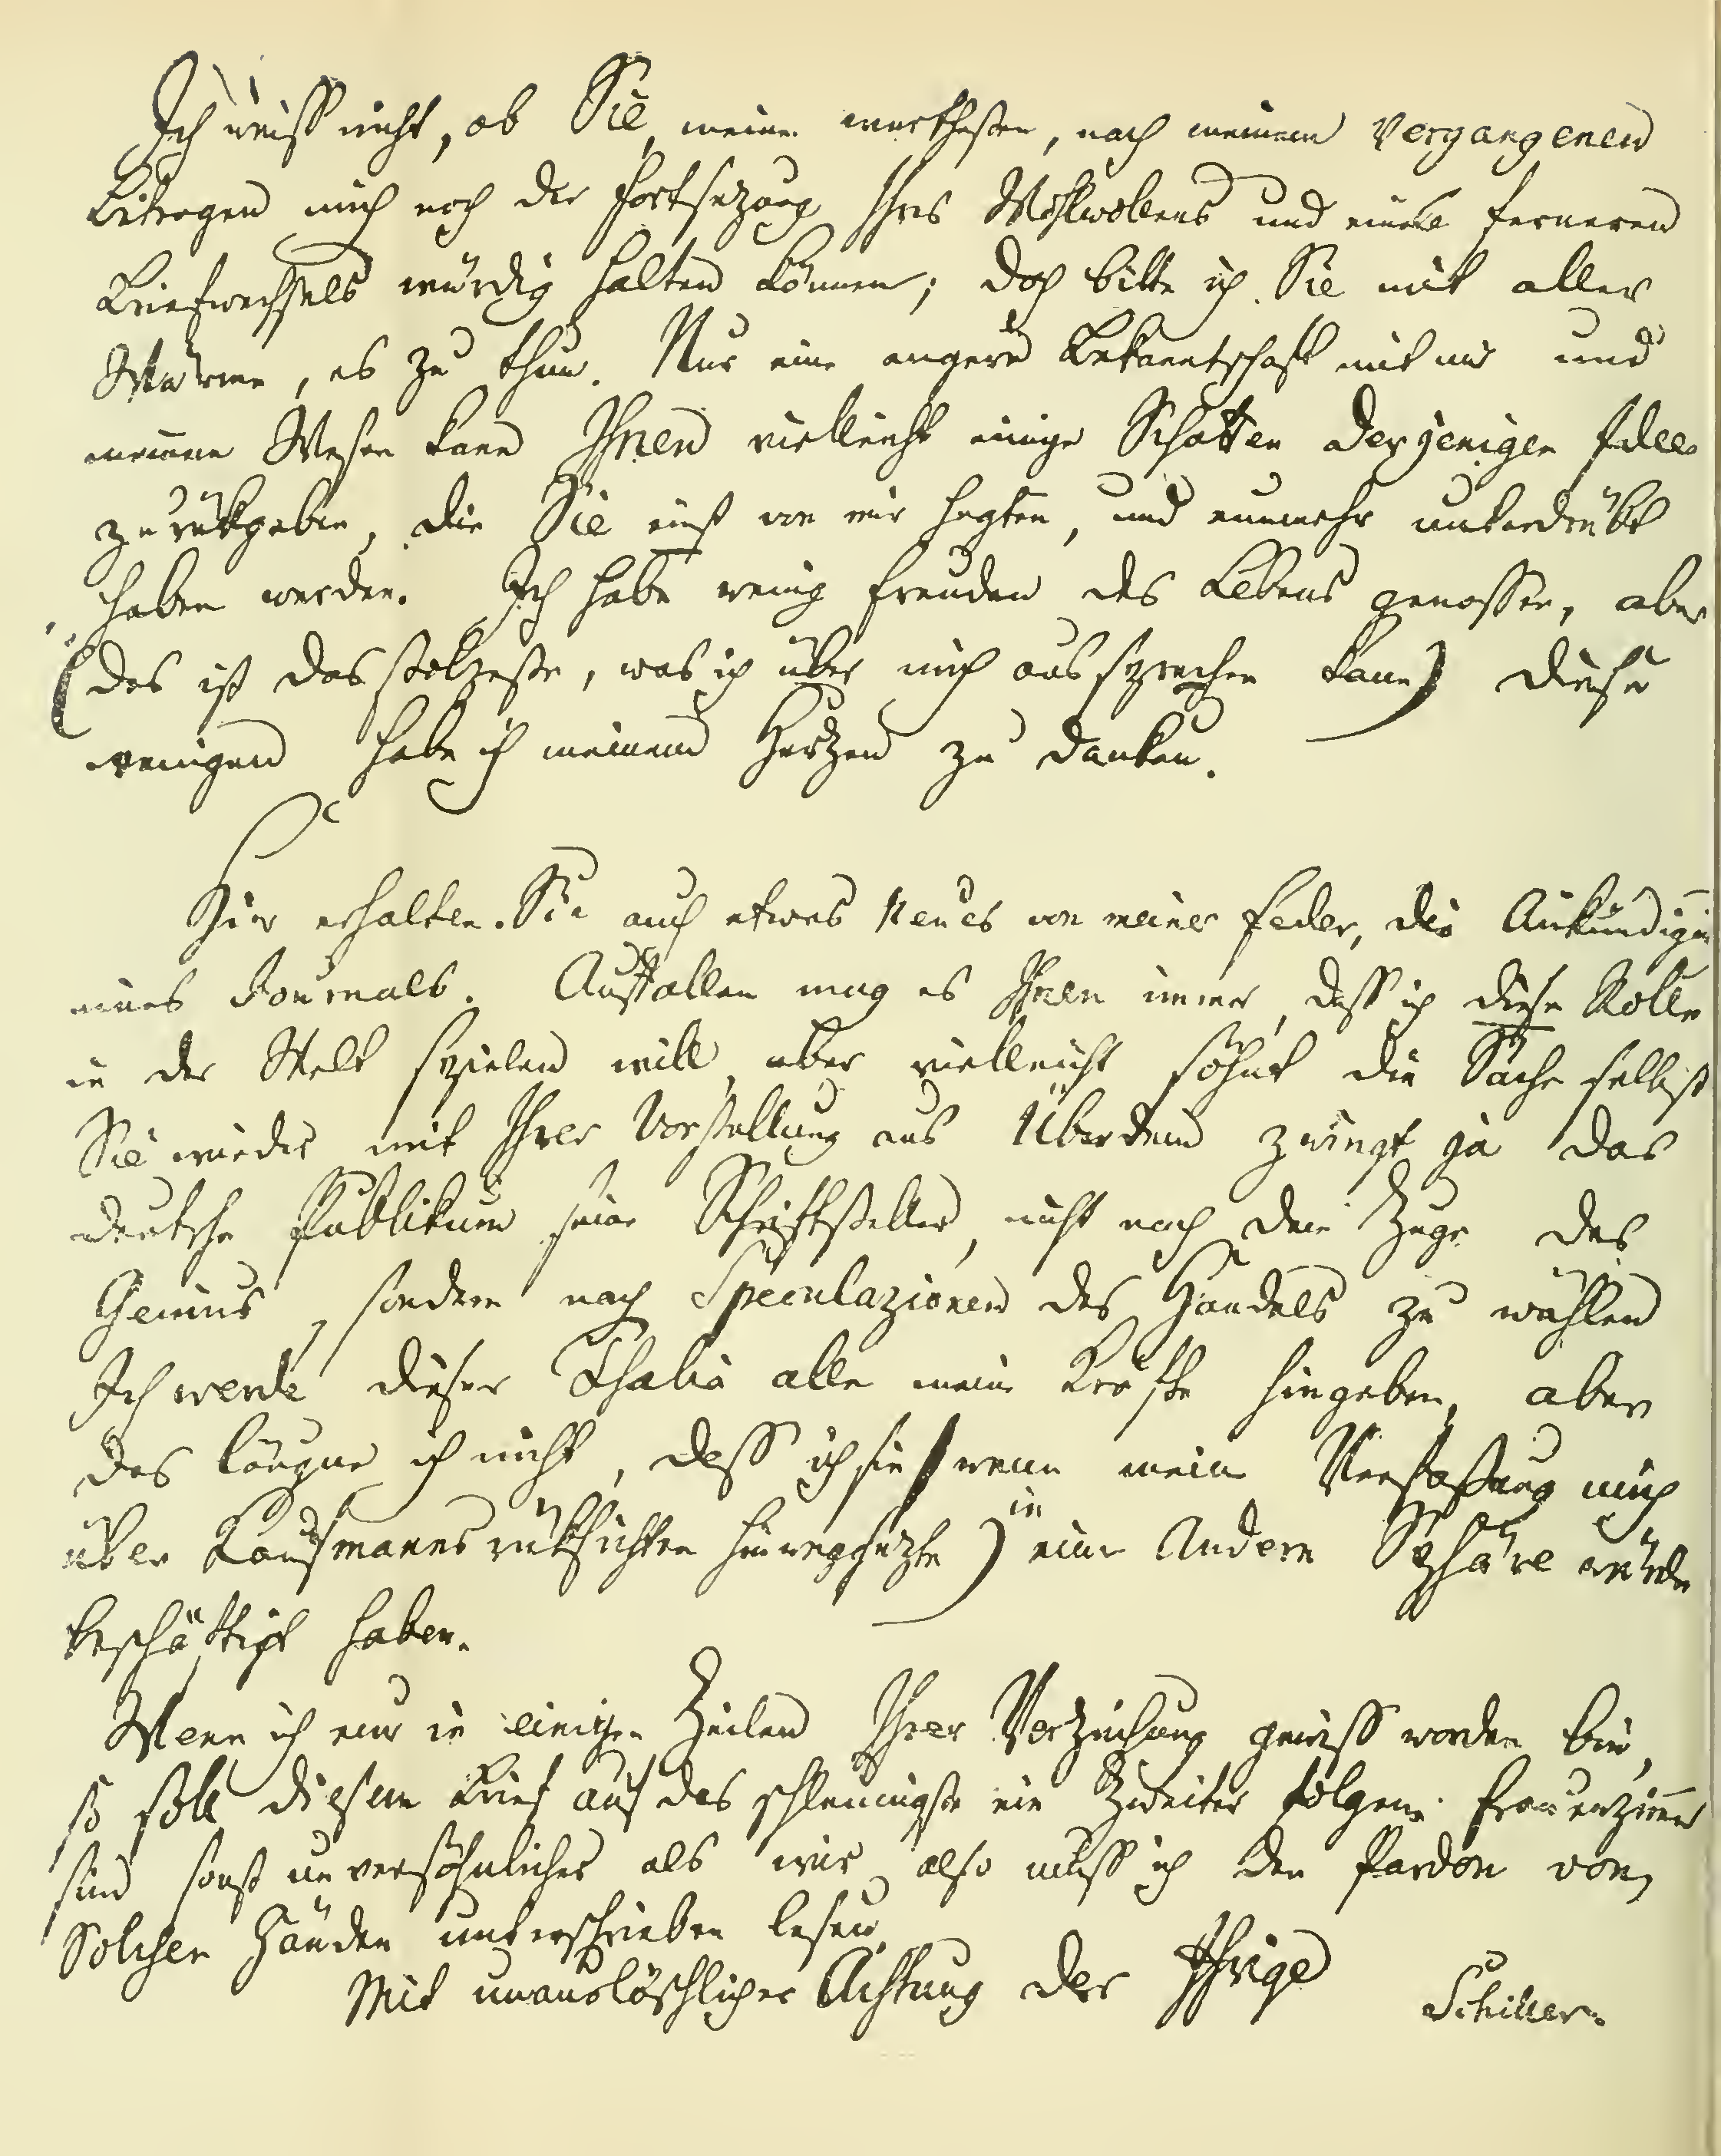 Ich weiss nicht, ob Sie, meine werthesten, nach meinem vergangenen
Betragen mich noch der Fortsezung Ihres Wohlwollens und eines ferneren
Briefwechsels würdig halten können; doch bitte ich Sie mit aller
Wärme, es zu thun. Nur eine engere Bekanntschaft mit mir und
meinem Wesen kann Ihnen vielleicht einige Schatten derjenigen Idee
zurükgeben, die Sie einst von mir hegten, und nunmehr unterdrükt
haben werden. Ich habe wenig Freuden des Lebens genossen, aber
(das ist das stolzeste, was ich über mich aussprechen kann) diese
wenigen habe ich meinem Herzen zu danken.
Hier erhalten Sie auch etwas Neues von meiner Feder, die Ankündigung
eines Journals. Auffallen mag es Ihnen immer, dass ich diese Rolle
in der Welt spielen will, aber vielleicht söhnt die Sache selbst
Sie wieder mit Ihrer Vorstellung aus Überdem zwingt ja das
deutsche Publikum seine Schriftsteller, nicht nach dem Zuge des
Genius, sondern nach Speculazionen des Handels zu wählen
Ich werde dieser Thalia alle meine Kräfte hingeben, aber
das läugne ich nicht, dass ich sie (wenn meine Verfassung mich
über Kaufmannsrüksichten hinwegsezte) in einer andern Sphäre würde
beschäftigt haben.
Wenn ich nur in einigen Zeilen Ihrer Verzeihung gewiss worden bin,
so soll diesem Brief auf das schleunigste ein Zweiter folgen. Frauenzimmer
sind sonst unversöhnlicher als wir, also muss ich den Pardon von
solchen Händen unterschrieben lesen.
Mit unauslöschlicher Achtung der Ihrige
Schiller.